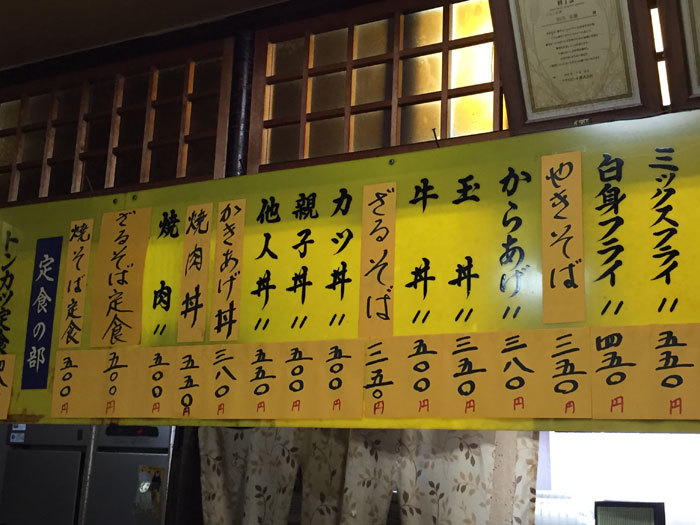 ミックスフライ〃 五五〇円
白身フライ〃 四五〇円
やきそば 三五〇円
からあげ〃 三八〇円
玉丼〃 三五〇円
牛丼〃 五〇〇円
ざるそば 三五〇円
カツ丼〃 五〇〇円
親子丼〃 五〇〇円
他人丼〃 五五〇円
かきあげ丼 三八〇円
焼肉丼 五五〇円
焼肉〃 五〇〇円
ざるそば定食 五〇〇円
焼そば定食 五〇〇円
定食の部
トンカツ定食